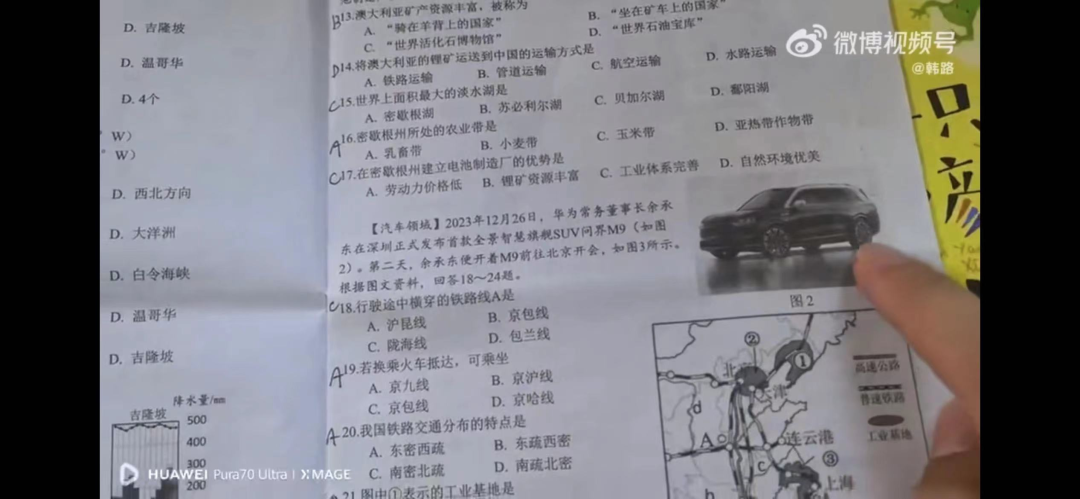 D. 吉隆坡
D. 温哥华
D. 4个
W)
W)
D. 西北方向
D. 大洋洲
D. 白令海峡
D. 温哥华
D. 吉隆坡
降水量/mm
吉隆坡
500
400
300
200
B13.澳大利亚矿产资源丰富，被称为
A. “骑在羊背上的国家” B. “坐在矿车上的国家”
C. “世界活化石博物馆” D. “世界石油宝库”
D14.将澳大利亚的锂矿运送到中国的运输方式是
A. 铁路运输 B. 管道运输 C. 航空运输 D. 水路运输
C15.世界上面积最大的淡水湖是
A. 密歇根湖 B. 苏必利尔湖 C. 贝加尔湖 D. 鄱阳湖
A16.密歇根州所处的农业带是
A. 乳畜带 B. 小麦带 C. 玉米带 D. 亚热带作物带
C17.在密歇根州建立电池制造厂的优势是
A. 劳动力价格低 B. 锂矿资源丰富 C. 工业体系完善 D. 自然环境优美
【汽车领域】2023年12月26日，华为常务董事长余承
东在深圳正式发布首款全景智慧旗舰SUV问界M9（如图
2）。第二天，余承东便开着M9前往北京开会，如图3所示。
根据图文资料，回答18～24题。
C18.行驶途中横穿的铁路线A是
A. 沪昆线 B. 京包线
C. 陇海线 D. 包兰线
A19.若换乘火车抵达，可乘坐
A. 京九线 B. 京沪线
C. 京包线 D. 京哈线
A20.我国铁路交通分布的特点是
A. 东密西疏 B. 东疏西密
C. 南密北疏 D. 南疏北密
21.图中①表示的工业基地是
图2
②
①
北京
津
d
A
连云港
c
③
上海
b
高速公路
普速铁路
工业基地
微博视频号
@韩路
HUAWEI Pura70 Ultra | XMAGE